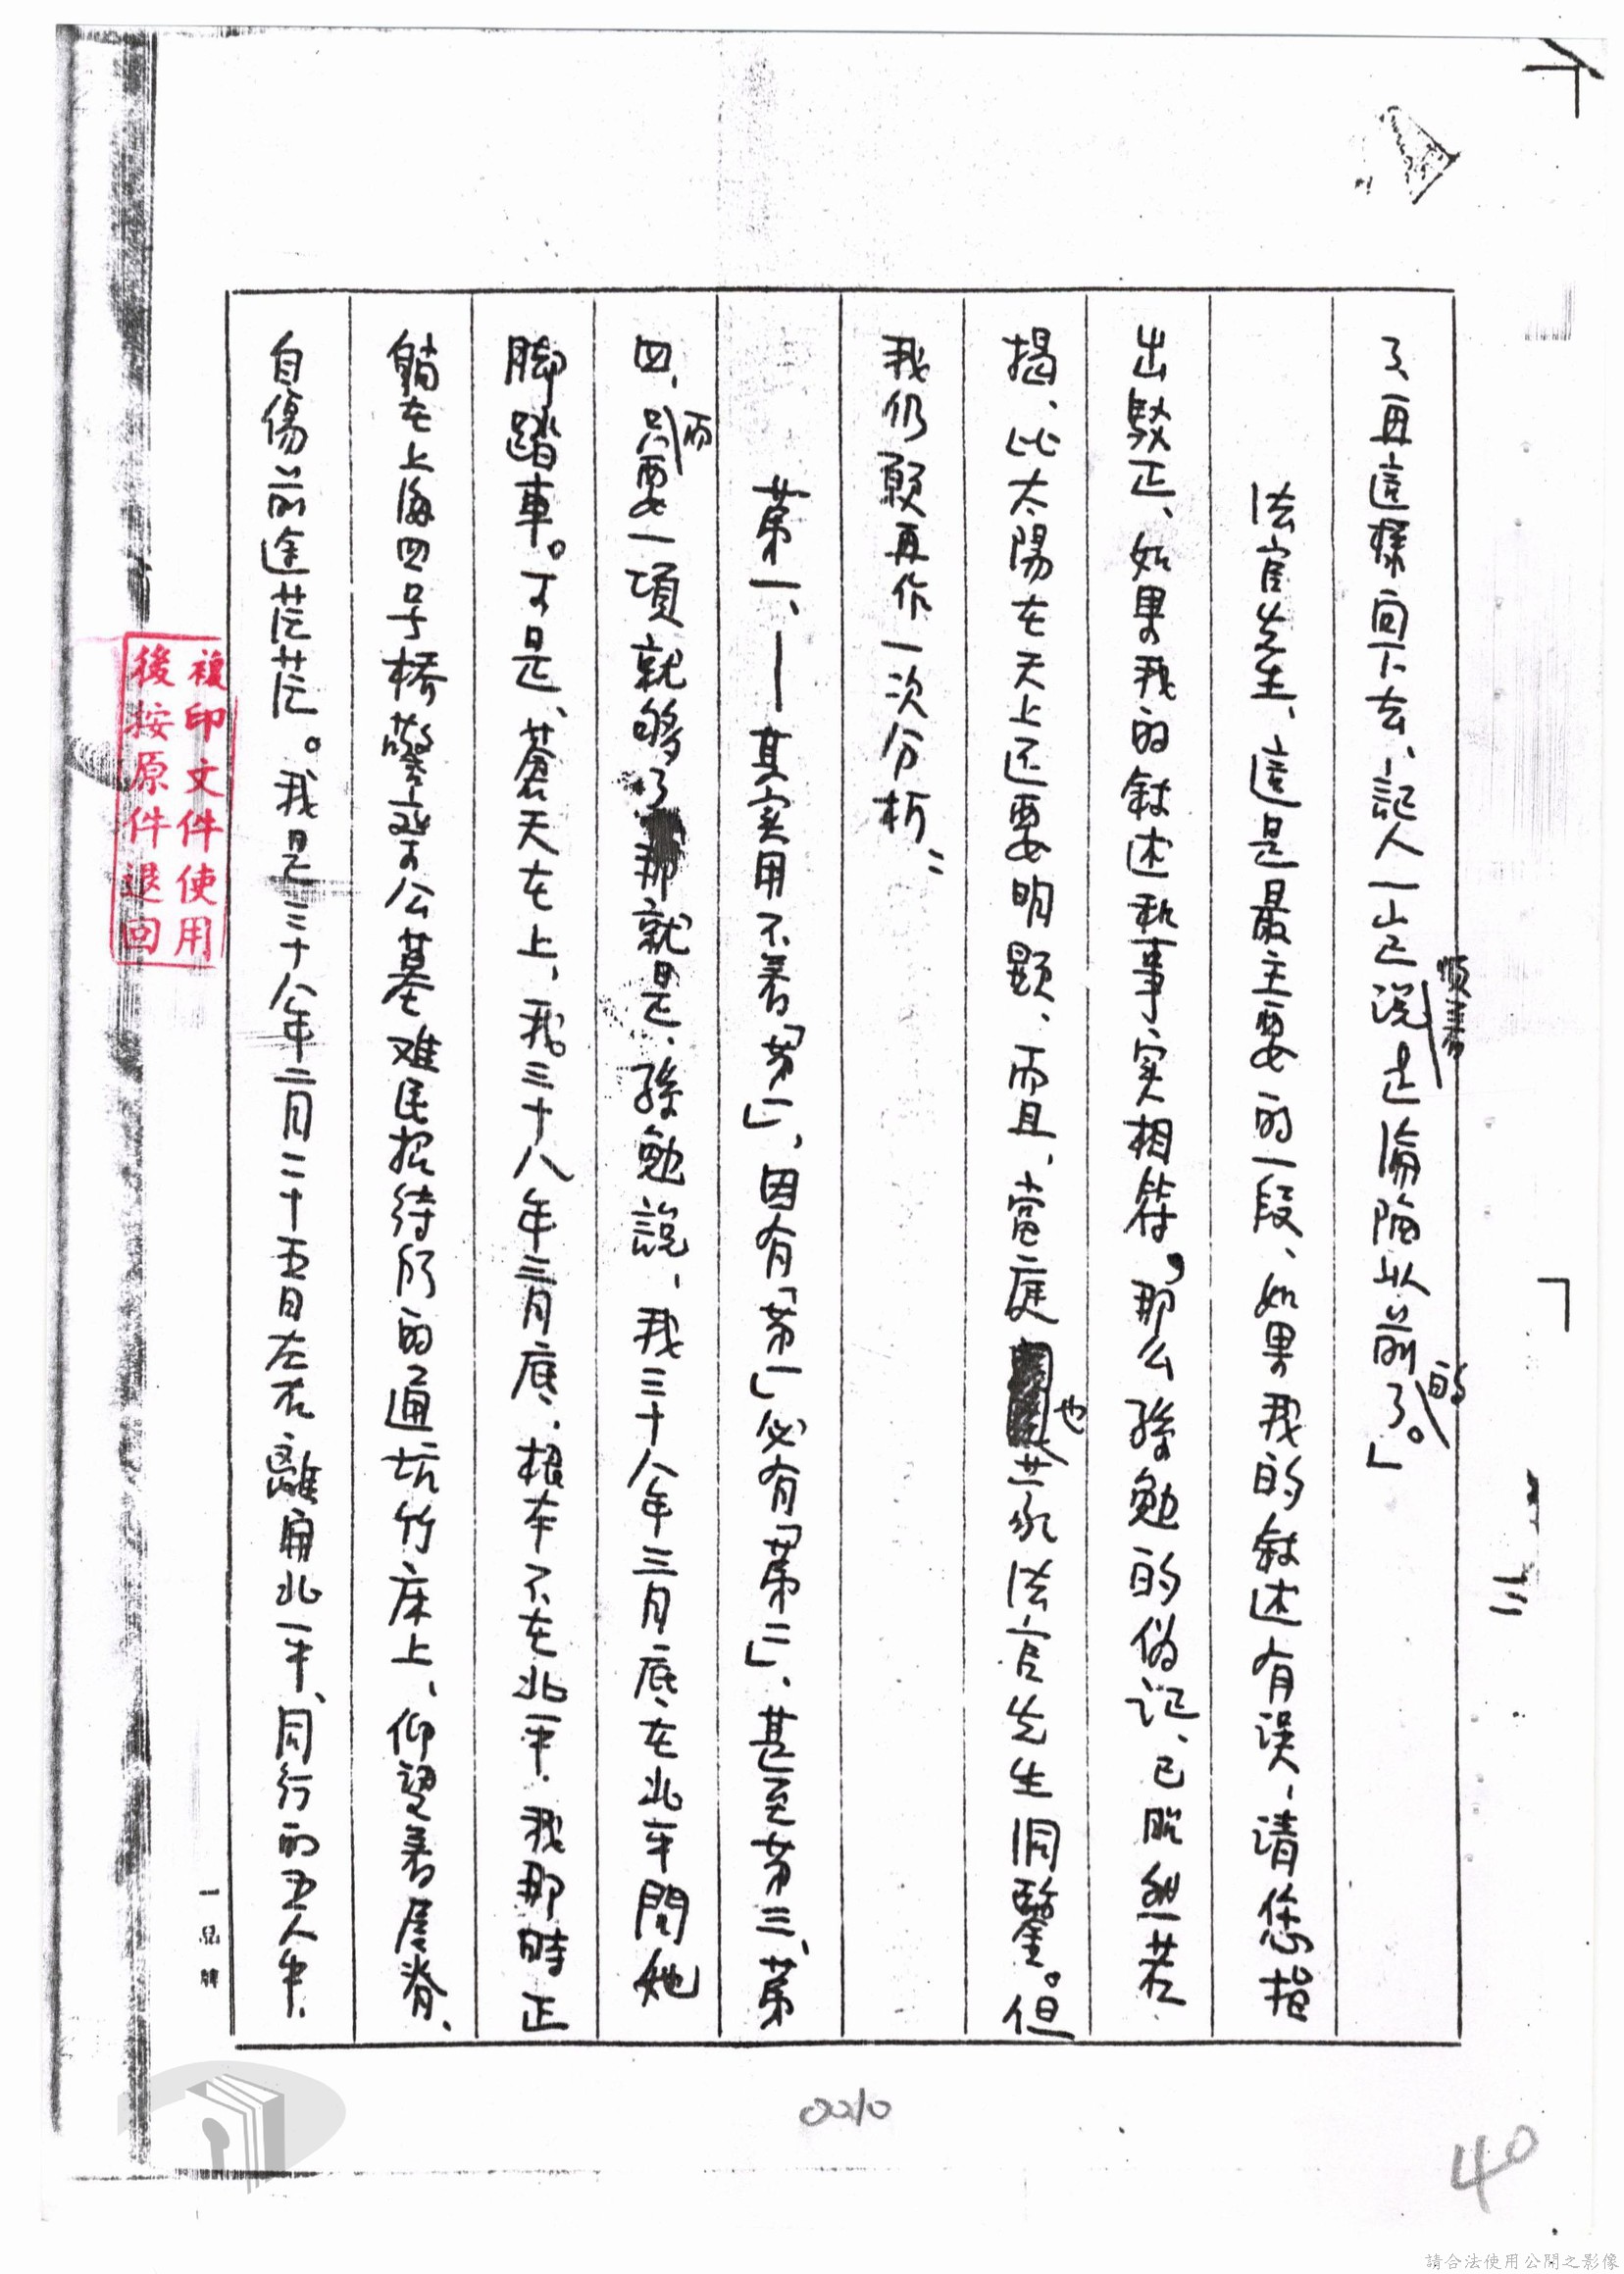 了、再這樣問下去、記人一出已
說出
淪陷以前了。」
的
法官先生、這是最主要的一段、如果我的敘述有误、请您指
出駁正、如果我的敘述和事实相符，那么孫勉的偽记、已昭然若
揭、比太陽在天上还要明顯、而且、當庭
也
蒙法官先生洞鑒。但
我仍願再作一次分析：
第一、—其实用不着「第一」，因有「第一」必有「第二」、甚至第三、第
四、
而
只要一項就够了
那就是、孫勉說、我三十八年三月底在北平問她
脚踏車。可是、蒼天在上、我三十八年三月底、根本不在北平、我那時正
躺在上海四号橋
公墓难民招待所的通坑竹床上、仰望着屋脊、
自傷前途茫茫。我是三十八年二月二十五日左右離開北平、同行的五人中、
複印文件使用
後按原件退回
一品牌
三
0010
40
請合法使用公開之影像